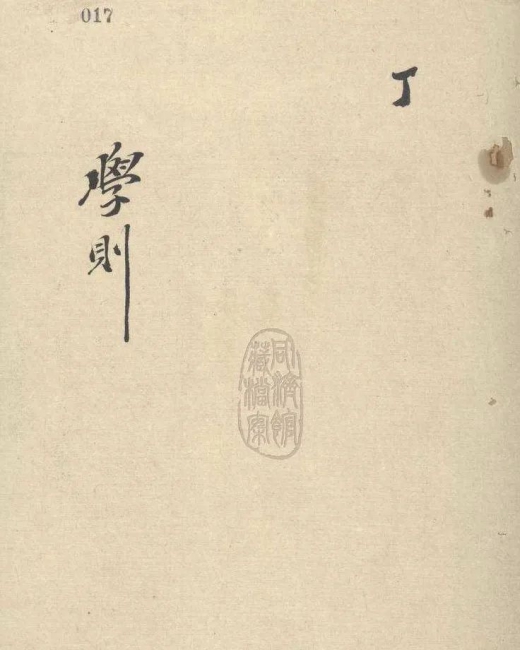 017
丁
學則
同濟館
藏檔案